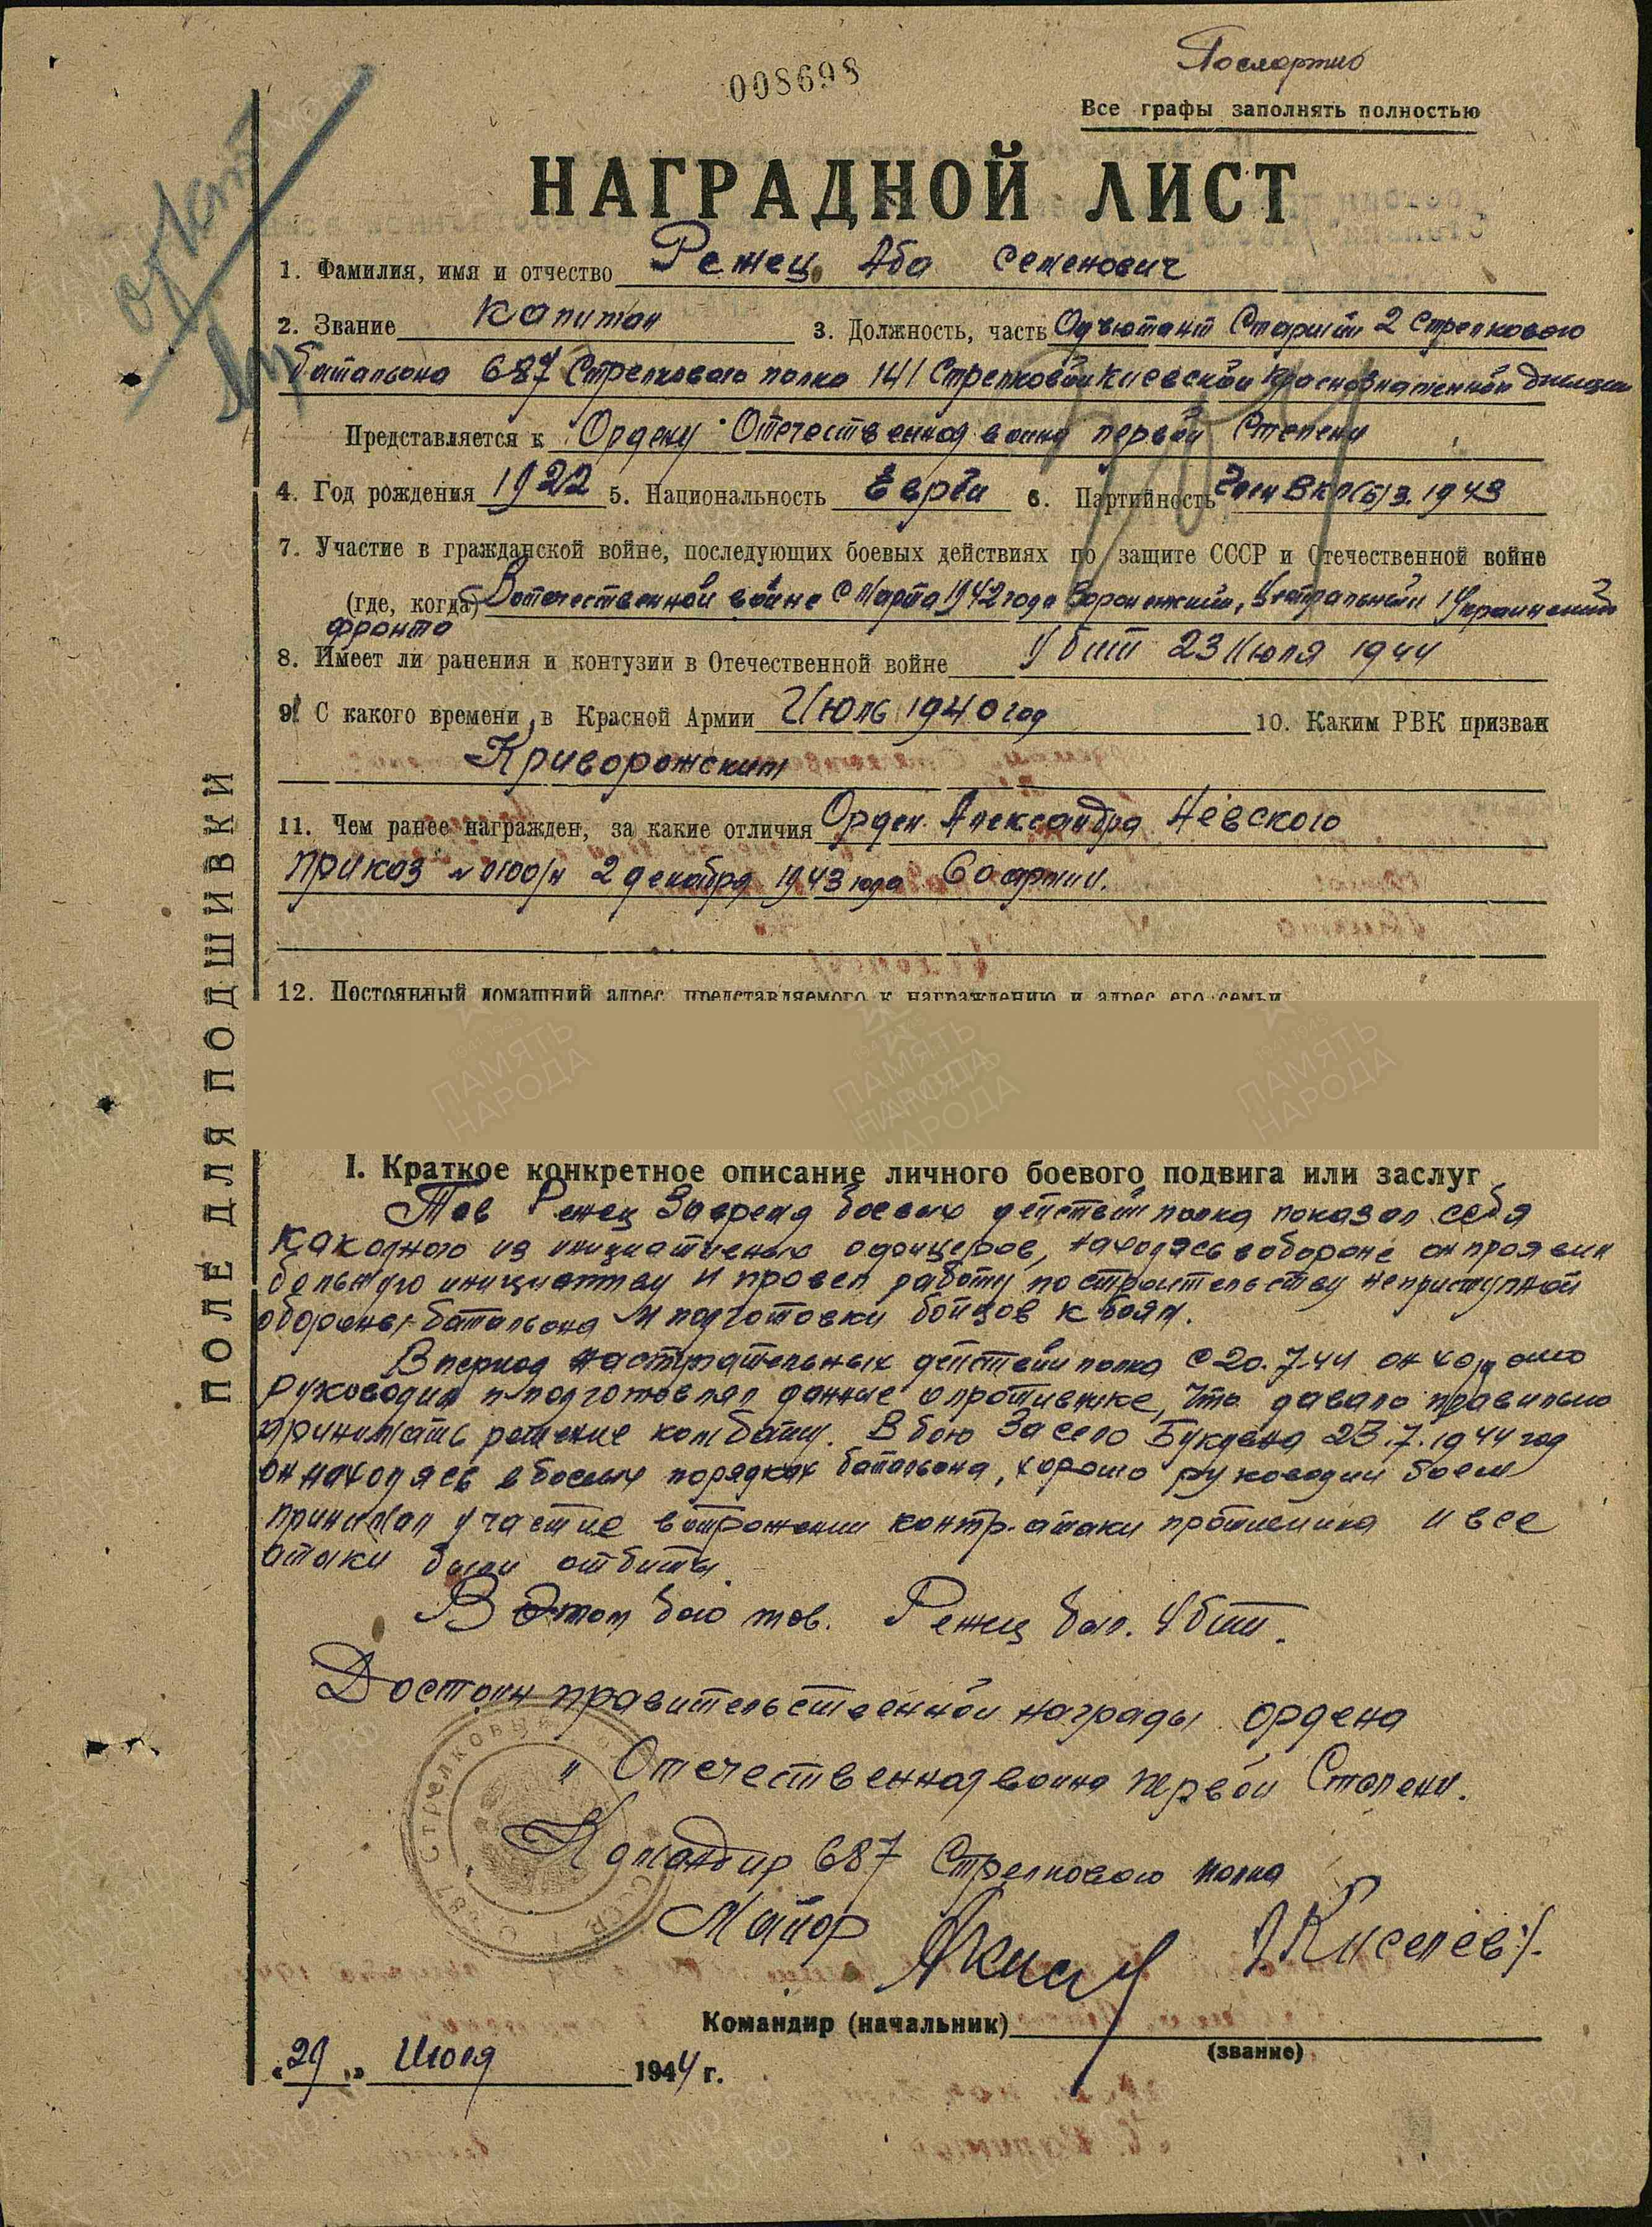 Посмертно
008698
Все графы заполнять полностью
НАГРАДНОЙ ЛИСТ
1. Фамилия, имя и отчество Режец Аба Семенович
2. Звание Капитан 3. Должность, часть Адъютант Старший 2 Стрелкового
батальона 687 Стрелкового полка 141 Стрелковой Киевской Краснознаменной дивизии
Представляется к Ордену Отечественная война первой Степени
4. Год рождения 1922 5. Национальность Еврей 6. Партийность Член ВКП(б) з. 1943
7. Участие в гражданской войне, последующих боевых действиях по защите СССР и Отечественной войне
(где, когда) В отечественной войне с Марта 1942 года Воронежский, Центральный 1 Украинский
фронта
8. Имеет ли ранения и контузии в Отечественной войне Убит 23 Июля 1944
9. С какого времени в Красной Армии Июль 1940 год 10. Каким РВК призван
Криворожским
11. Чем ранее награжден, за какие отличия Орден Александра Невского
приказ № 0100/н 2 декабря 1943 года 60 армии.
12. Постоянный домашний адрес представляемого к награждению и адрес его семьи
ПОЛЕ ДЛЯ ПОДШИВКИ
I. Краткое конкретное описание личного боевого подвига или заслуг
Тов Режец За время боевых действий полка показал себя
как одного из инициативных офицеров, находясь в обороне он проявил
большую инициативу и провел работу по строительству неприступной
обороны батальона и подготовки бойцов к боям.
В период наступательных действий полка с 20.7.44 он хорошо
руководил и подготовлял данные о противнике, что давало правильно
принимать решение комбату. В бою За село 23.7.1944 год
он находясь в боевых порядках батальона, хорошо руководил боем
принимал участие в отражении контр-атаки противника и все
атаки были отбиты.
В этом бою тов. Режец был убит.
Достоин правительственной награды ордена
"Отечественная война первой Степени.
Командир 687 Стрелкового полка
Майор /Киселев/.
687 Стрелковый
Командир (начальник)
(звание)
«29» Июля 1944 г.
ПАМЯТЬ НАРОДА
ПАМЯТЬ НАРОДА
ПАМЯТЬ НАРОДА